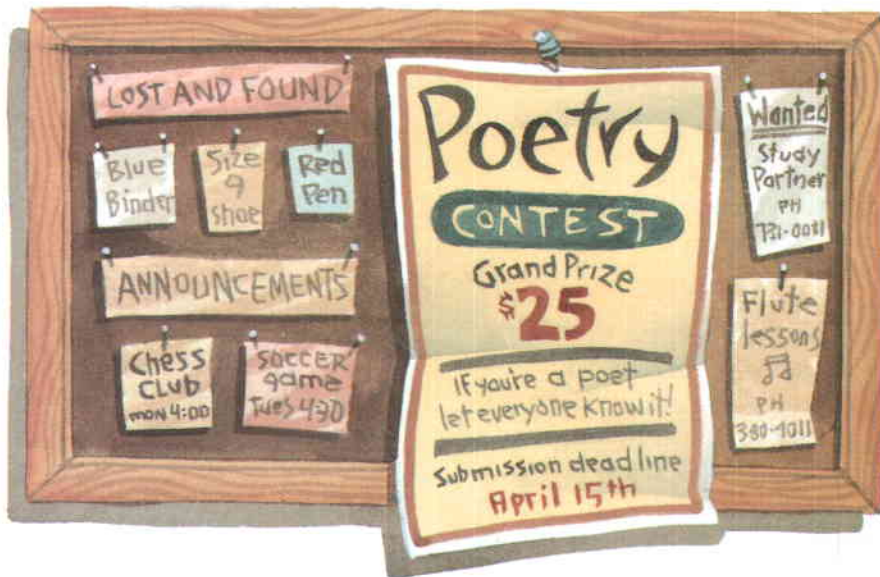 LOST AND FOUND
Blue
Binder
Size
9
shoe
Red
Pen
ANNOUNCEMENTS
Chess
CLUB
MON 4:00
SOCCER
game
Tues 4:30
Poetry
CONTEST
Grand Prize
$25
IF you're a poet
let everyone know it!
Submission deadline
April 15th
Wanted
Study
Partner
PH
Flute
lessons
PH